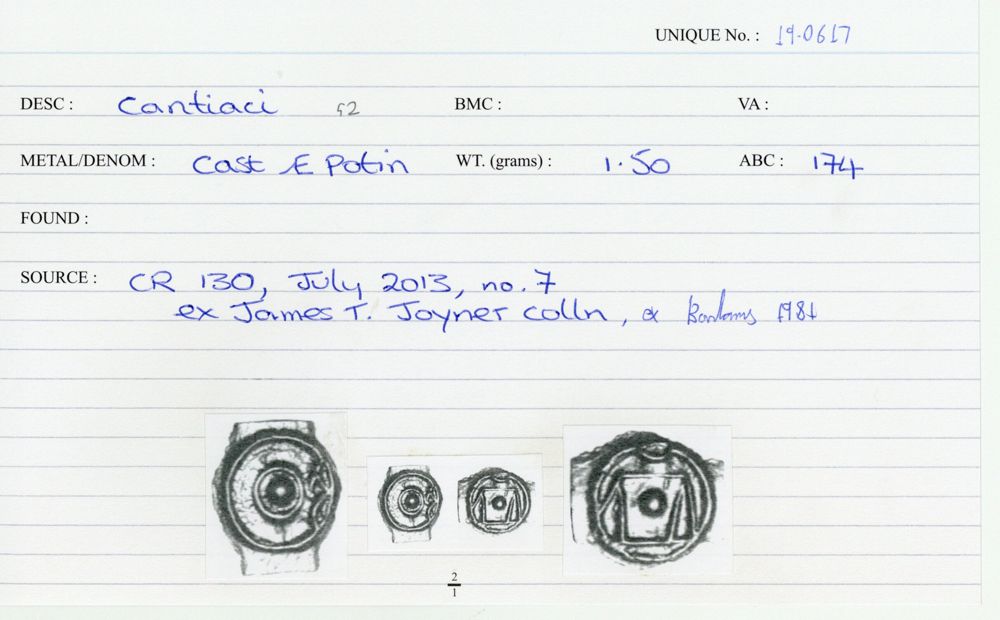 UNIQUE No. : 19-0617
DESC : Cantiaci 52 BMC : VA :
METAL/DENOM : Cast Æ Potin WT. (grams) : 1.50 ABC : 174
FOUND :
SOURCE : CR 130, July 2013, no. 7
ex James T. Joyner colln, ex Bonhams
2
1